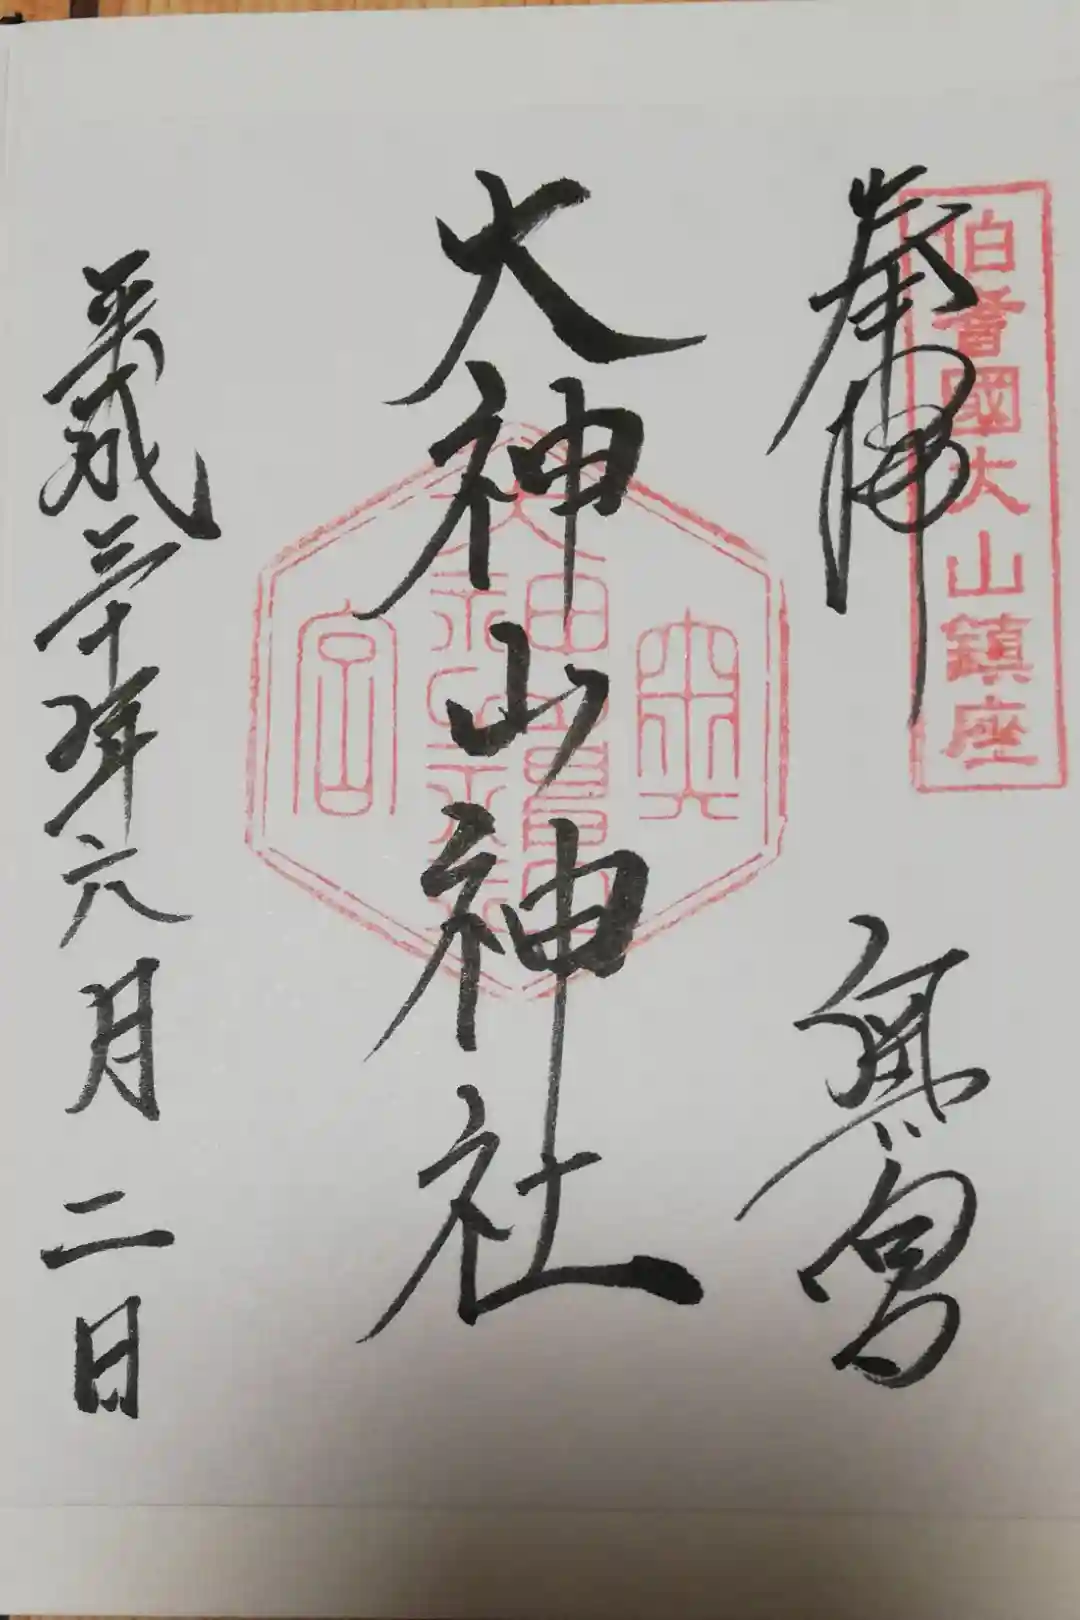 伯耆國大山鎮座
奉拝 奥宮
大神山神社
奥
宮
平成三十年六月二日